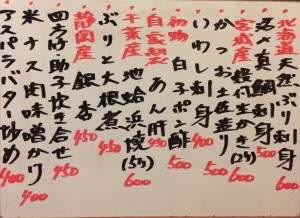 北海道天然ぶり刺身 500
天然真鯛刺身 500
宮城産 殻付生かき(2ケ) 600
かつお土佐造り 500
いわし刺身 400
初物 白子ポン酢 500
自家製 あん肝 450
千葉産 地蛤浜焼(5ケ) 600
ぶりと大根煮 450
静岡産 銀杏 450
四方竹助子炊き合せ 450
米ナス肉味噌かけ 400
アスパラバター炒め 400